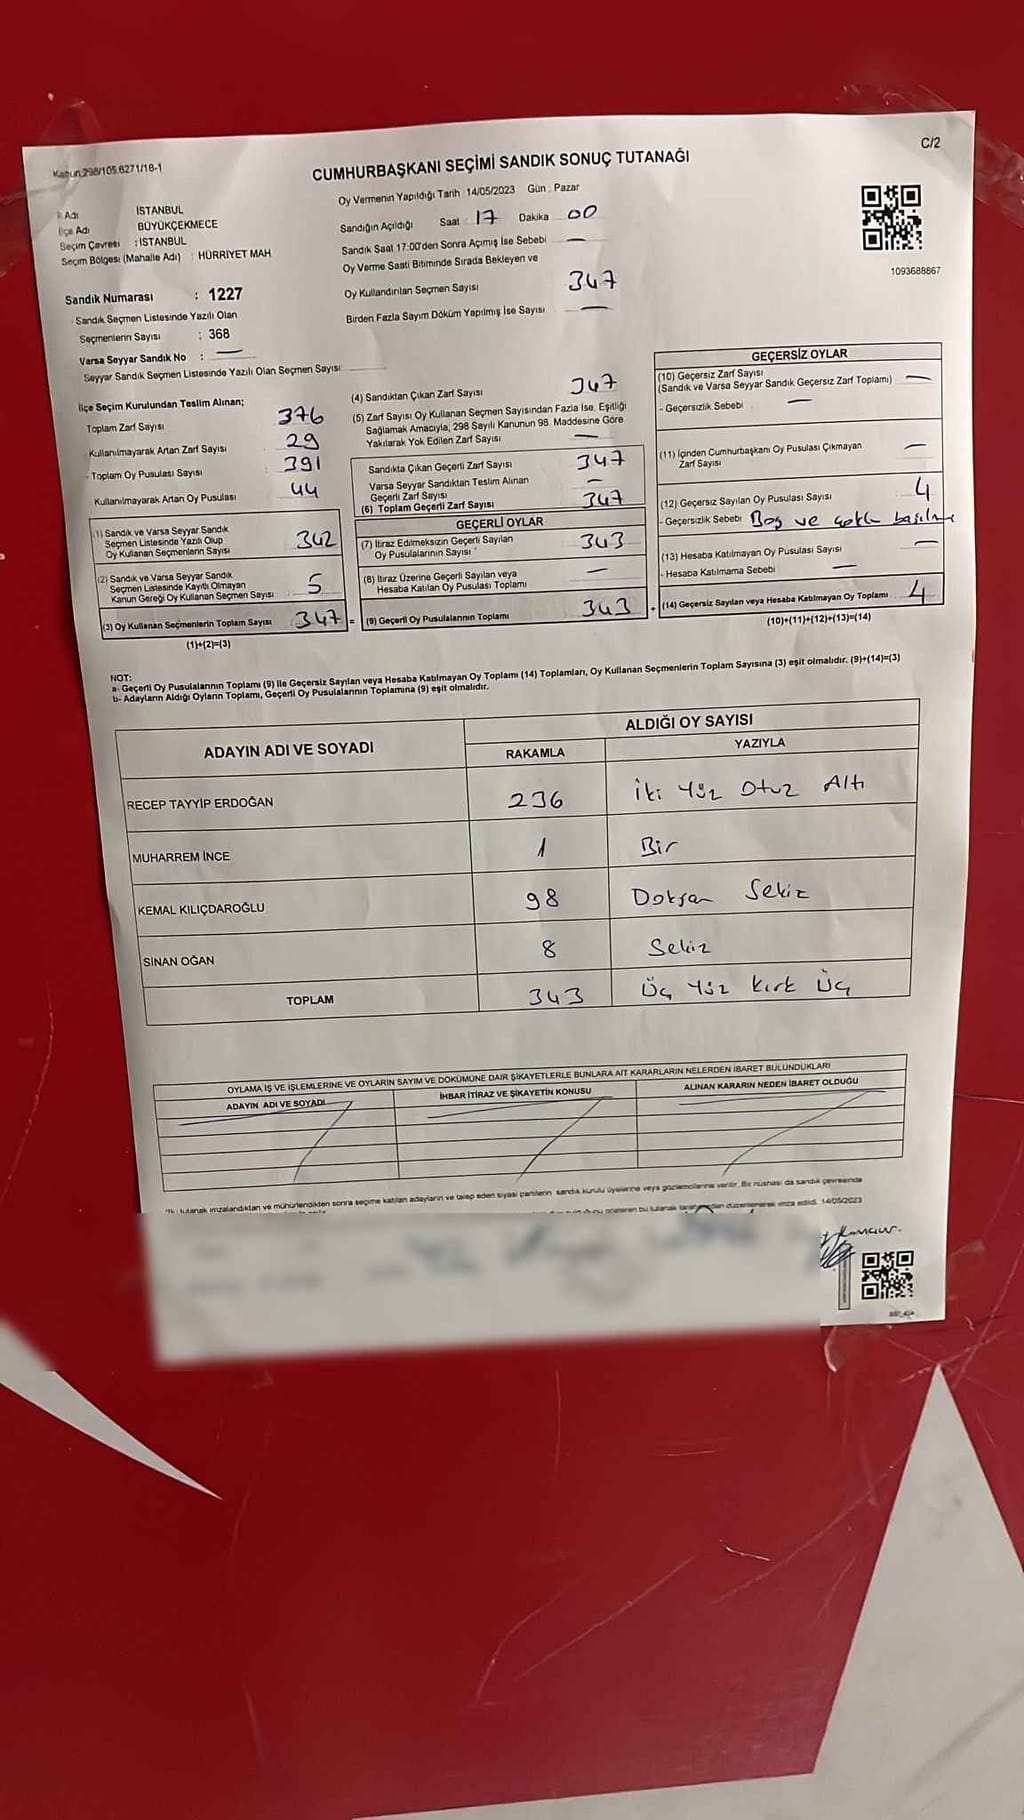 Kanun:298/105.6271/18-1
C/2
CUMHURBAŞKANI SEÇİMİ SANDIK SONUÇ TUTANAĞI
İl Adı İSTANBUL
İlçe Adı BÜYÜKÇEKMECE
Seçim Çevresi : İSTANBUL
Seçim Bölgesi (Mahalle Adı) : HÜRRİYET MAH
Sandık Numarası : 1227
Sandık Seçmen Listesinde Yazılı Olan
Seçmenlerin Sayısı : 368
Varsa Seyyar Sandık No : —
Seyyar Sandık Seçmen Listesinde Yazılı Olan Seçmen Sayısı
Oy Vermenin Yapıldığı Tarih 14/05/2023 Gün : Pazar
Sandığın Açıldığı Saat 17 Dakika 00
Sandık Saat 17:00'den Sonra Açımış İse Sebebi —
Oy Verme Saati Bitiminde Sırada Bekleyen ve
Oy Kullandırılan Seçmen Sayısı 347
Birden Fazla Sayım Döküm Yapılmış İse Sayısı —
1093688867
İlçe Seçim Kurulundan Teslim Alınan;
Toplam Zarf Sayısı 376
Kullanılmayarak Artan Zarf Sayısı 29
- Toplam Oy Pusulası Sayısı 391
Kullanılmayarak Artan Oy Pusulası 44
(1) Sandık ve Varsa Seyyar Sandık
Seçmen Listesinde Yazılı Olup
Oy Kullanan Seçmenlerin Sayısı 342
(2) Sandık ve Varsa Seyyar Sandık
Seçmen Listesinde Kayıtlı Olmayan
Kanun Gereği Oy Kullanan Seçmen Sayısı 5
(3) Oy Kullanan Seçmenlerin Toplam Sayısı 347 =
(1)+(2)=(3)
(4) Sandıktan Çıkan Zarf Sayısı 347
(5) Zarf Sayısı Oy Kullanan Seçmen Sayısından Fazla İse, Eşitliği
Sağlamak Amacıyla, 298 Sayılı Kanunun 98. Maddesine Göre
Yakılarak Yok Edilen Zarf Sayısı —
Sandıkta Çıkan Geçerli Zarf Sayısı 347
Varsa Seyyar Sandıktan Teslim Alınan
Geçerli Zarf Sayısı —
(6) Toplam Geçerli Zarf Sayısı 347
GEÇERLİ OYLAR
(7) İtiraz Edilmeksizin Geçerli Sayılan
Oy Pusulalarının Sayısı 343
(8) İtiraz Üzerine Geçerli Sayılan veya
Hesaba Katılan Oy Pusulası Toplamı —
(9) Geçerli Oy Pusulalarının Toplamı 343 +
GEÇERSİZ OYLAR
(10) Geçersiz Zarf Sayısı
(Sandık ve Varsa Seyyar Sandık Geçersiz Zarf Toplamı) —
- Geçersizlik Sebebi —
(11) İçinden Cumhurbaşkanı Oy Pusulası Çıkmayan
Zarf Sayısı —
(12) Geçersiz Sayılan Oy Pusulası Sayısı 4
- Geçersizlik Sebebi Boş ve çoklu basılmış
(13) Hesaba Katılmayan Oy Pusulası Sayısı —
- Hesaba Katılmama Sebebi —
(14) Geçersiz Sayılan veya Hesaba Katılmayan Oy Toplamı 4
(10)+(11)+(12)+(13)=(14)
NOT:
a- Geçerli Oy Pusulalarının Toplamı (9) İle Geçersiz Sayılan veya Hesaba Katılmayan Oy Toplamı (14) Toplamları, Oy Kullanan Seçmenlerin Toplam Sayısına (3) eşit olmalıdır. (9)+(14)=(3)
b- Adayların Aldığı Oyların Toplamı, Geçerli Oy Pusulalarının Toplamına (9) eşit olmalıdır.
ADAYIN ADI VE SOYADI
ALDIĞI OY SAYISI
RAKAMLA YAZIYLA
RECEP TAYYİP ERDOĞAN 236 İki Yüz Otuz Altı
MUHARREM İNCE 1 Bir
KEMAL KILIÇDAROĞLU 98 Doksan Sekiz
SİNAN OĞAN 8 Sekiz
TOPLAM 343 Üç Yüz Kırk Üç
OYLAMA İŞ VE İŞLEMLERİNE VE OYLARIN SAYIM VE DÖKÜMÜNE DAİR ŞİKAYETLERLE BUNLARA AİT KARARLARIN NELERDEN İBARET BULUNDUKLARI
ADAYIN ADI VE SOYADI İHBAR İTİRAZ VE ŞİKAYETİN KONUSU ALINAN KARARIN NEDEN İBARET OLDUĞU
tutanak imzalandıktan ve mühürlendikten sonra seçime katılan adayların ve talep eden siyasi partilerin sandık kurulu üyelerine veya gözlemcilerine verilir. Bir nüshası da sandık çevresinde
gösteren bu tutanak tarafımızdan düzenlenerek imza edildi. 14/05/2023